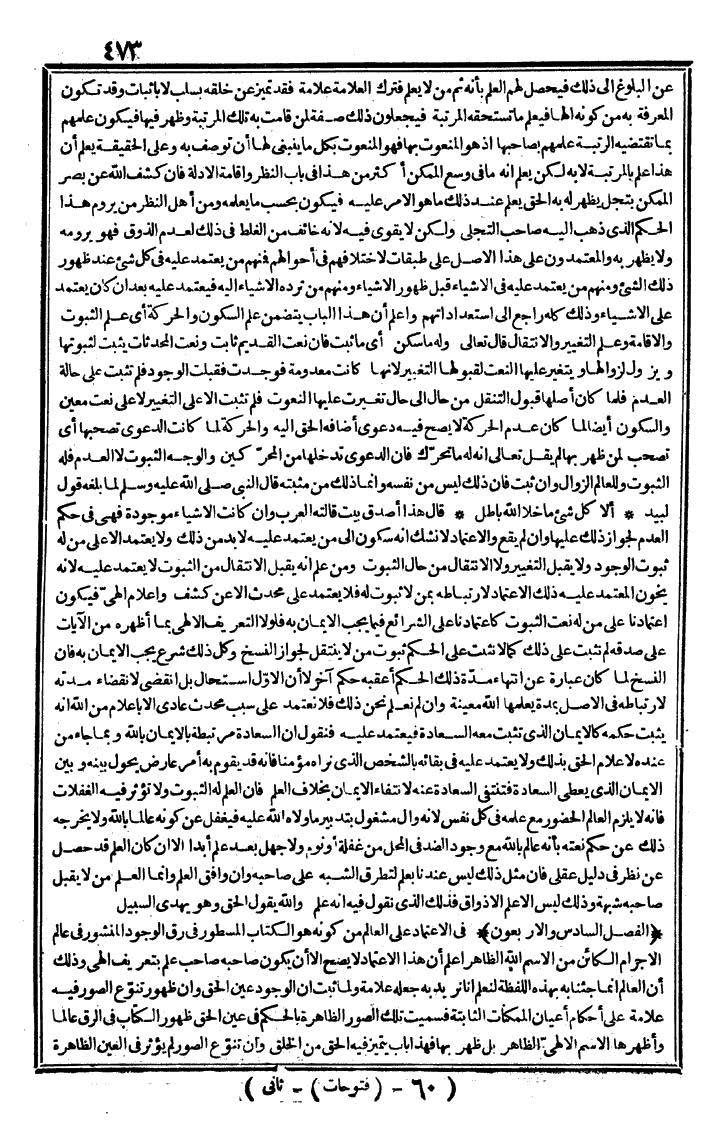 ٤٧٣
عن البلوغ الى ذلك فيحصل لهم العلم بأنه ثم من لا يعلم فترك العلامة علامة فقد تميز عن خلقه بسلب لا باثبات وقد تكون
المعرفة به من كونه الها فيعلم ما تستحقه المرتبة فيجعلون ذلك صفة لمن قامت به تلك المرتبة وظهر فيها فيكون علمهم
بما تقتضيه الرتبة علمهم بصاحبها اذ هو المنعوت بها فهو المنعوت بكل ما ينبغي لها أن توصف به وعلى الحقيقة يعلم أن
هذا علم بالمرتبة لا به لكن يعلم انه ما فى وسع الممكن أكثر من هذا فى باب النظر واقامة الادلة فان كشف الله عن بصر
الممكن بتجل يظهر له به الحق يعلم عند ذلك ما هو الامر عليه فيكون بحسب ما يعلمه ومن أهل النظر من يروم هذا
الحكم الذى ذهب اليه صاحب التجلى ولكن لا يقوى فيه لانه خائف من الغلط فى ذلك لعدم الذوق فهو يرومه
ولا يظهر به والمعتمدون على هذا الاصل على طبقات لاختلافهم فى أحوالهم فمنهم من يعتمد عليه فى كل شئ عند ظهور
ذلك الشئ ومنهم من يعتمد عليه فى الاشياء قبل ظهور الاشياء ومنهم من ترده الاشياء اليه فيعتمد عليه بعد ان كان يعتمد
على الاشياء وذلك كله راجع الى استعداداتهم واعلم أن هذا الباب يتضمن علم السكون والحركة أى علم الثبوت
والاقامة وعلم التغيير والانتقال قال تعالى وله ما سكن أى ما ثبت فان نعت القديم ثابت ونعت المحدثات يثبت لثبوتها
ويزول لزوالها ويتغير عليها النعت لقبولها التغيير لانها كانت معدومة فوجدت فقبلت الوجود فلم تثبت على حالة
العدم فلما كان أصلها قبول التنقل من حال الى حال تغيرت عليها النعوت فلم تثبت الا على التغيير لا على نعت معين
والسكون أيضا لما كان عدم الحركة لا يصح فيه دعوى أضافه الحق اليه والحركة لما كانت الدعوى تصحبها أى
تصحب لمن ظهر بها لم يقل تعالى انه له ما تحرّك فان الدعوى تدخلها من المحرّكين والوجه الثبوت لا العدم فله
الثبوت وللعالم الزوال وان ثبت فان ذلك ليس من نفسه وانما ذلك من مثبته قال النبى صلى الله عليه وسلم لما بلغه قول
لبيد * ألا كل شئ ما خلا الله باطل * قال هذا أصدق بيت قالته العرب وان كانت الاشياء موجودة فهى فى حكم
العدم لجواز ذلك عليها وان لم يقع والاعتماد لا نشك انه سكون الى من يعتمد عليه لا بد من ذلك ولا يعتمد الا على من له
ثبوت الوجود ولا يقبل التغيير ولا الانتقال من حال الثبوت ومن علم انه يقبل الانتقال من الثبوت لا يعتمد عليه لانه
يخون المعتمد عليه ذلك الاعتماد لارتباطه بمن لا ثبوت له فلا يعتمد على محدث الا عن كشف واعلام الهىّ فيكون
اعتمادنا على من له نعت الثبوت كاعتمادنا على الشرائع فيما يجب الايمان به فلولا التعريف الالهى بما أظهره من الآيات
على صدقه لم نثبت على ذلك كما لا نثبت على الحكم ثبوت من لا ينتقل لجواز النسخ وكل ذلك شرع يجب الايمان به فان
النسخ لما كان عبارة عن انتهاء مدّة ذلك الحكم أعقبه حكم آخر لا أن الاوّل استحال بل انقضى لانقضاء مدته
لارتباطه فى الاصل بمدة يعلمها الله معينة وان لم نعلم نحن ذلك فلا نعتمد على سبب محدث عادى الا باعلام من الله انه
يثبت حكمه كالايمان الذى تثبت معه السعادة فيعتمد عليه فنقول ان السعادة مرتبطة بالايمان بالله وبما جاء من
عنده لاعلام الحق بذلك ولا يعتمد عليه فى بقائه بالشخص الذى نراه مؤمنا فانه قد يقوم به أمر عارض يحول بينه وبين
الايمان الذى يعطى السعادة فتنتفى السعادة عنه لانتفاء الايمان بخلاف العلم فان العلم له الثبوت ولا تؤثر فيه الغفلات
فانه لا يلزم العالم الحضور مع علمه فى كل نفس لانه وال مشغول بتدبير ما ولاه الله عليه فيغفل عن كونه عالما بالله ولا يخرجه
ذلك عن حكم نعته بأنه عالم بالله مع وجود الضد فى المحل من غفلة أو نوم ولا جهل بعد علم أبدا الا ان كان العلم قد حصل
عن نظر فى دليل عقلى فان مثل ذلك ليس عندنا بعلم لتطرق الشبه على صاحبه وان وافق العلم وانما العلم من لا يقبل
صاحبه شبهة وذلك ليس الا علم الاذواق فذلك الذى نقول فيه انه علم والله يقول الحق وهو يهدى السبيل
﴿الفصل السادس والاربعون﴾ فى الاعتماد على العالم من كونه هو الكتاب المسطور فى رق الوجود المنشور فى عالم
الاجرام الكائن من الاسم الله الظاهر اعلم أن هذا الاعتماد لا يصح الا أن يكون صاحبه صاحب علم بتعريف الهى وذلك
أن العالم انما جئنا به بهذه اللفظة لنعلم انا نريد به جعله علامة ولما ثبت ان الوجود عين الحق وان ظهور تنوّع الصور فيه
علامة على أحكام أعيان الممكنات الثابتة فسميت تلك الصور الظاهرة بالحكم فى عين الحق ظهور الكتاب فى الرق عالما
وأظهرها الاسم الالهىّ الظاهر بل ظهر بها فهذا باب يتميز فيه الحق من الخلق وان تنوّع الصور لم يؤثر فى العين الظاهرة
(٦٠ - (فتوحات) - ثانى)